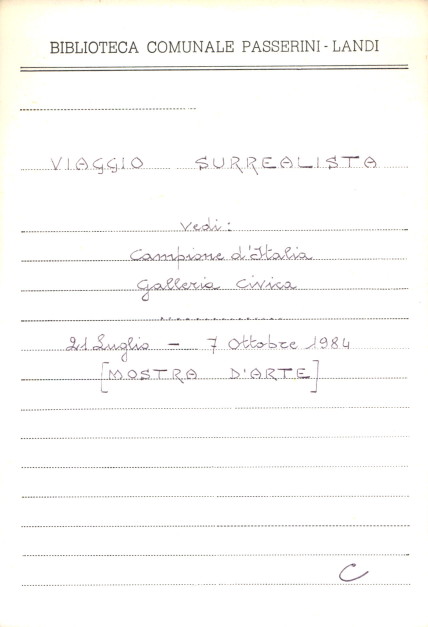 BIBLIOTECA COMUNALE PASSERINI - LANDI
VIAGGIO SURREALISTA
Vedi:
Campione d'Italia
Galleria Civica
..............
21 Luglio - 7 Ottobre 1984
[MOSTRA D'ARTE]
C